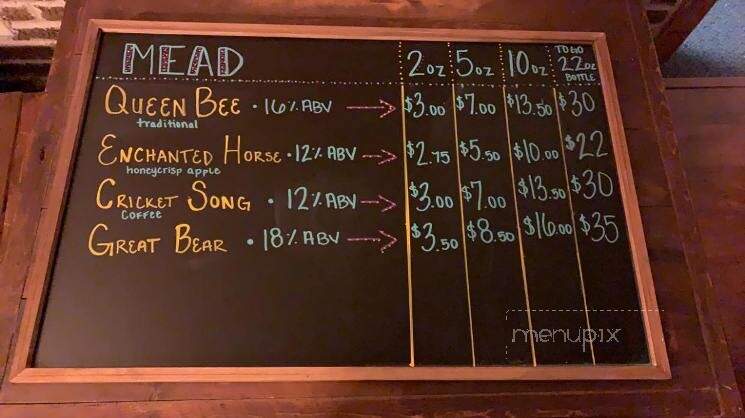 MEAD 2oz 5oz 10oz TO GO 22oz BOTTLE
QUEEN BEE • 16% ABV → $3.00 $7.00 $13.50 $30
traditional
ENCHANTED HORSE • 12% ABV → $2.75 $5.50 $10.00 $22
honeycrisp apple
CRICKET SONG • 12% ABV → $3.00 $7.00 $13.50 $30
COFFEE
GREAT BEAR • 18% ABV → $3.50 $8.50 $16.00 $35
menupix